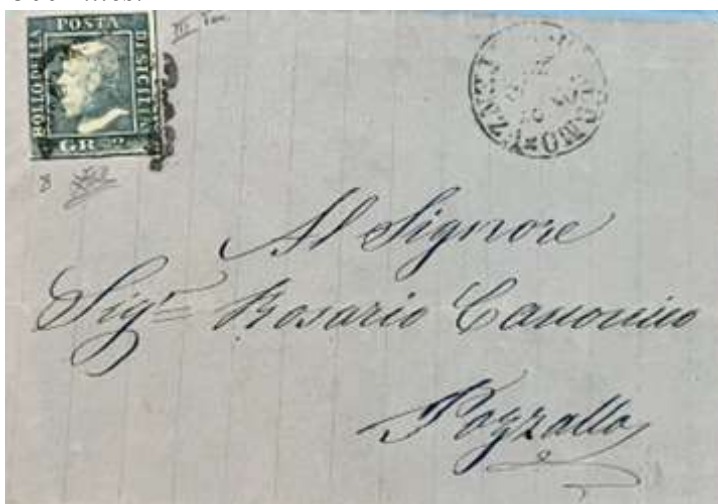 BOLLO DELLA
POSTA
DI SICILIA
GR 2
III
8
Al Signore
Sigr Rosario Canonico
Pozzallo